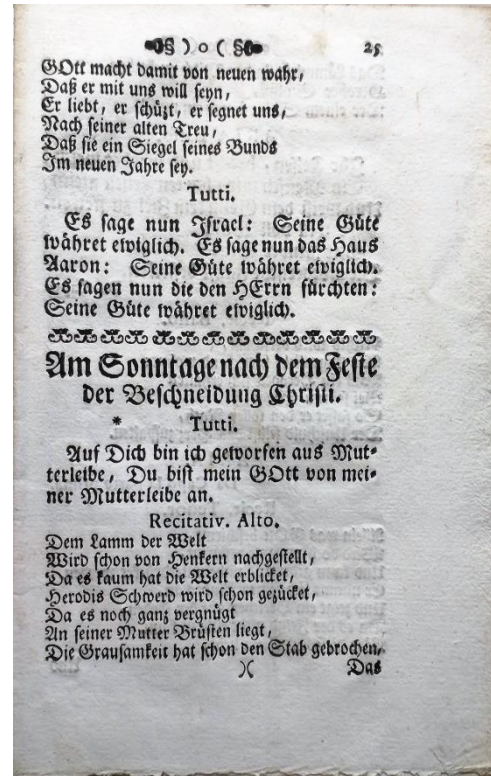 § ) o ( § 25
GOtt macht damit von neuen wahr,
Daß er mit uns will seyn,
Er liebt, er schüzt, er segnet uns,
Nach seiner alten Treu,
Daß sie ein Siegel seines Bunds
Im neuen Jahre sey.
Tutti.
Es sage nun Israel: Seine Güte
währet ewiglich. Es sage nun das Haus
Aaron: Seine Güte währet ewiglich.
Es sagen nun die den HErrn fürchten:
Seine Güte währet ewiglich.
Am Sonntage nach dem Feste
der Beschneidung Christi.
* Tutti.
Auf Dich bin ich geworfen aus Mut-
terleibe, Du bist mein GOtt von mei-
ner Mutterleibe an.
Recitativ. Alto.
Dem Lamm der Welt
Wird schon von Henkern nachgestellt,
Da es kaum hat die Welt erblicket,
Herodis Schwerd wird schon gezücket,
Da es noch ganz vergnügt
An seiner Mutter Brüsten liegt,
Die Grausamkeit hat schon den Stab gebrochen,
)( Das